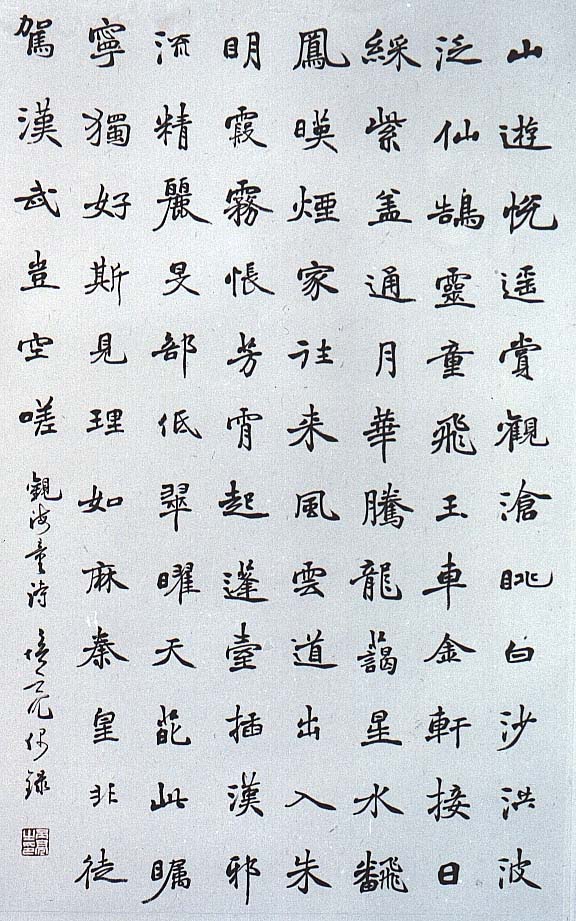 山遊悦遥賞觀滄眺白沙洪波
泛仙鵠靈童飛王車金軒接日
綵紫盖通月華騰龍藹星水飜
鳳暎煙家往来風雲道出入朱
明霞霧帳芳宵起蓬臺插漢邪
流精麗旻部低翠曜天葩此矚
寧獨好斯見理如麻秦皇非徒
駕漢武豈空嗟 觀海童詩 培元偶録